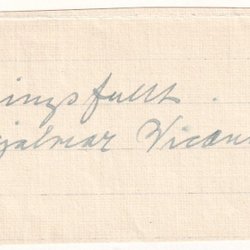 ingsfullt.
jalmar Vican